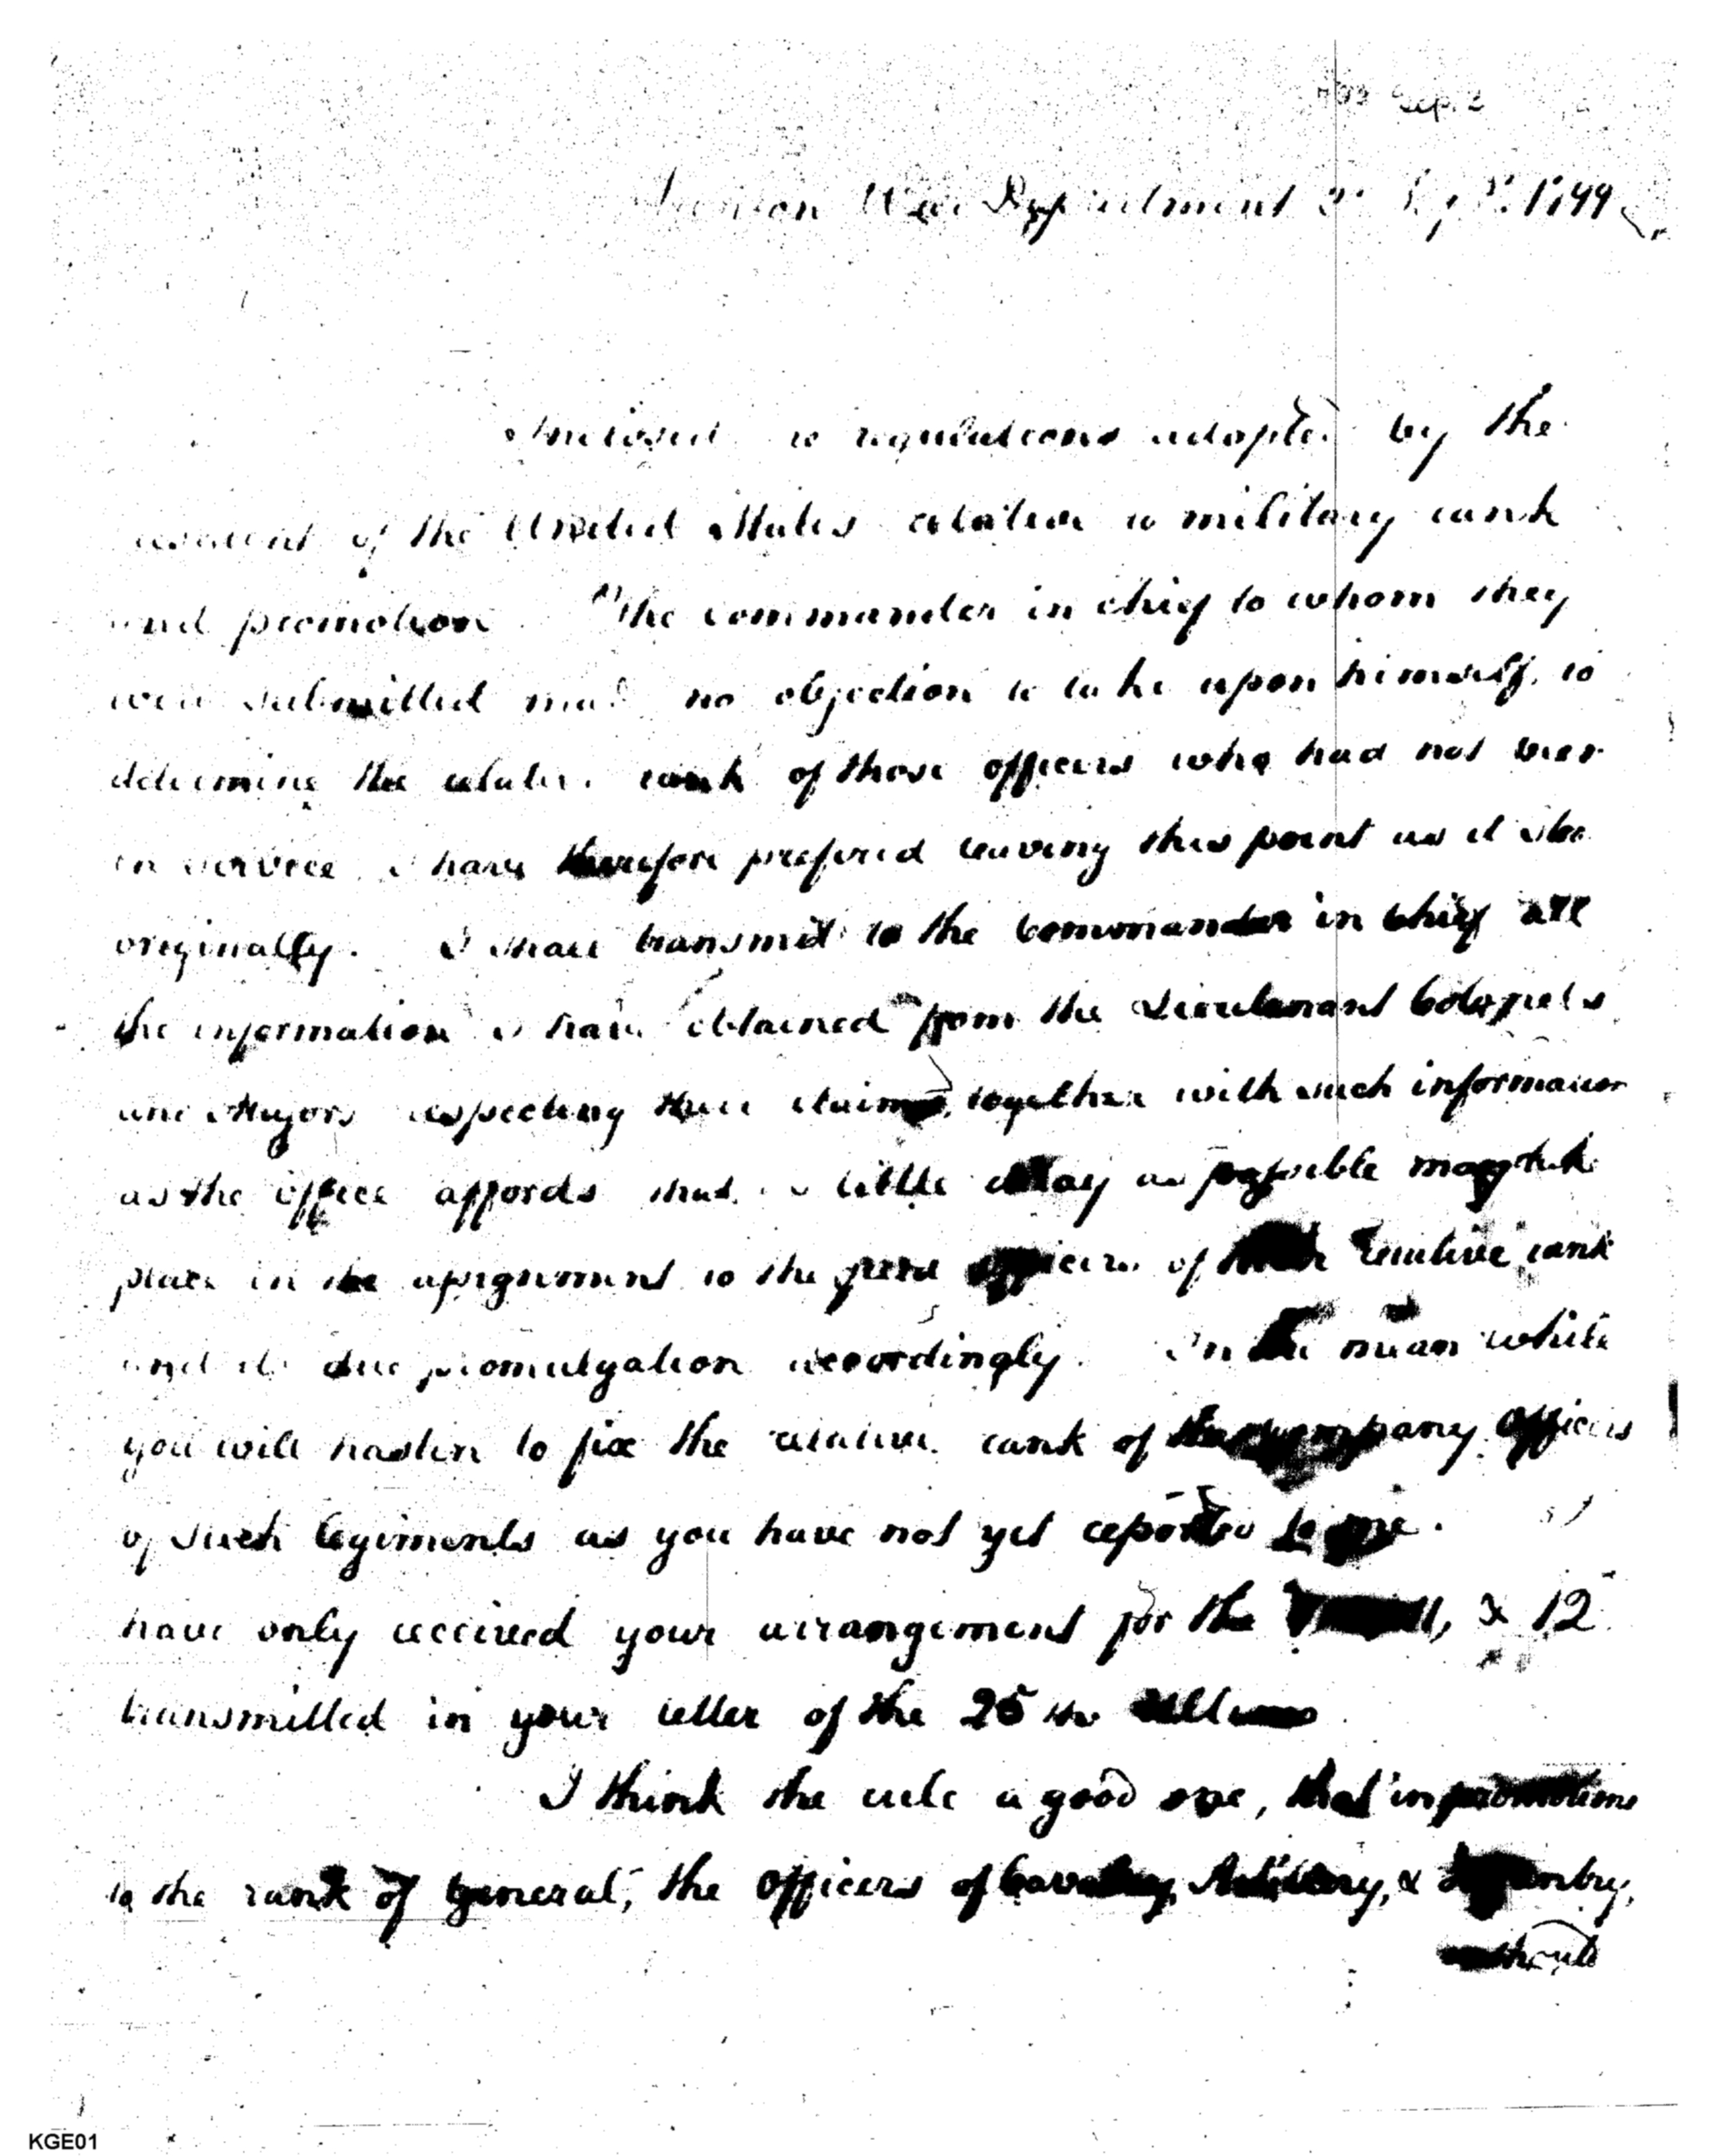 Sep. 2
Trenton War Department 2d Sepr. 1799
Inclosed is regulations adopted by the
President of the United States relative to military rank
and promotion. The commander in chief to whom they
were submitted made no objection to take upon himself, to
determine the relative rank of those officers who had not been
in service. I have therefore prefered leaving this point as it
originally. I shall transmit to the Commander in Chief all
the information I have obtained from the Lieutenant Colonels
and Majors respecting their claims, together with such information
as the office affords that as little delay as possible may take
place in the assignment to the field officers of their relative rank
and its due promulgation accordingly. In the mean while
you will hasten to fix the relative rank of the company officers
of such regiments as you have not yet reported to me.
have only received your arrangement for the 11, & 12
transmitted in your letter of the 25th Ultimo.
I think the rule a good one, that in promotions
to the rank of General, the officers of Cavalry, Artillery, & Infantry,
should
KGE01